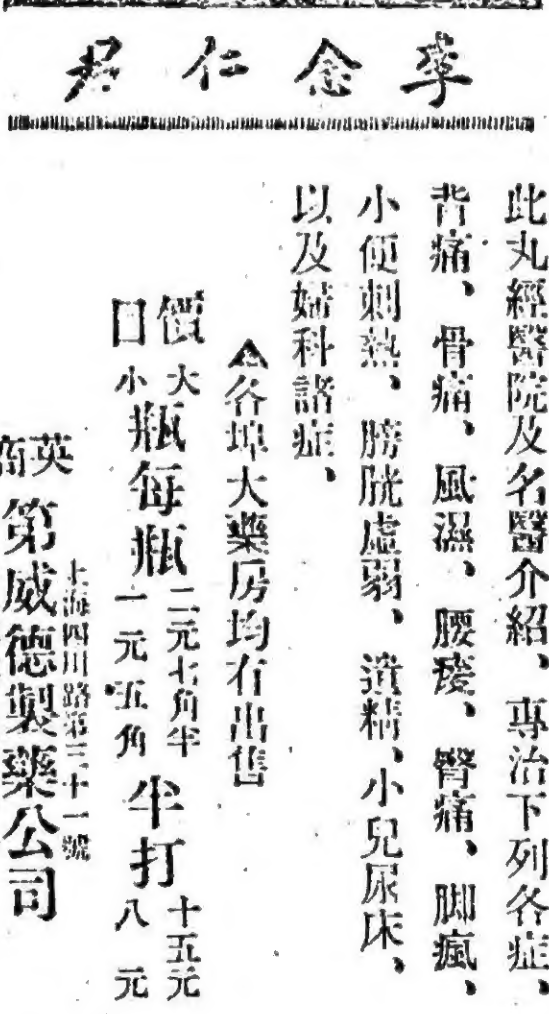 李念仁君
此丸經醫院及名醫介紹、專治下列各症、
背痛、骨痛、風濕、腰痠、腎痛、脚瘋、
小便刺熱、膀胱虛弱、遺精、小兒尿床、
以及婦科諸症、
▲各埠大藥房均有出售
價目 大小瓶每瓶 二元七角半 一元五角 半打 十五元 八元
上海四川路第三十一號
英商 第威德製藥公司